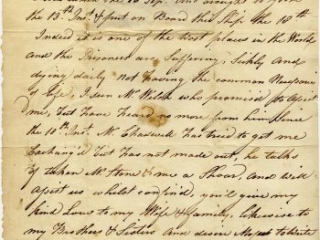 the 13th Inst & put on Board this Ship the 18th
Indeed it is one of the worst places in the World
and the Prisoners are Suffering, Sickly and
dying daily Not having the common Necessaries
of Life, I seen Mr Welch who promised to Assist
me, but have heard no more from him since
the 10th Inst. Mr Chadwell has tried to get me
Exchang'd but has not made out, he talks
of taken Mr Stone & me a Shoar, and will
assist us whilst confind, you'll give my
kind Love to my Wife & family, likewise to
my Brothers & Sisters and desire to write